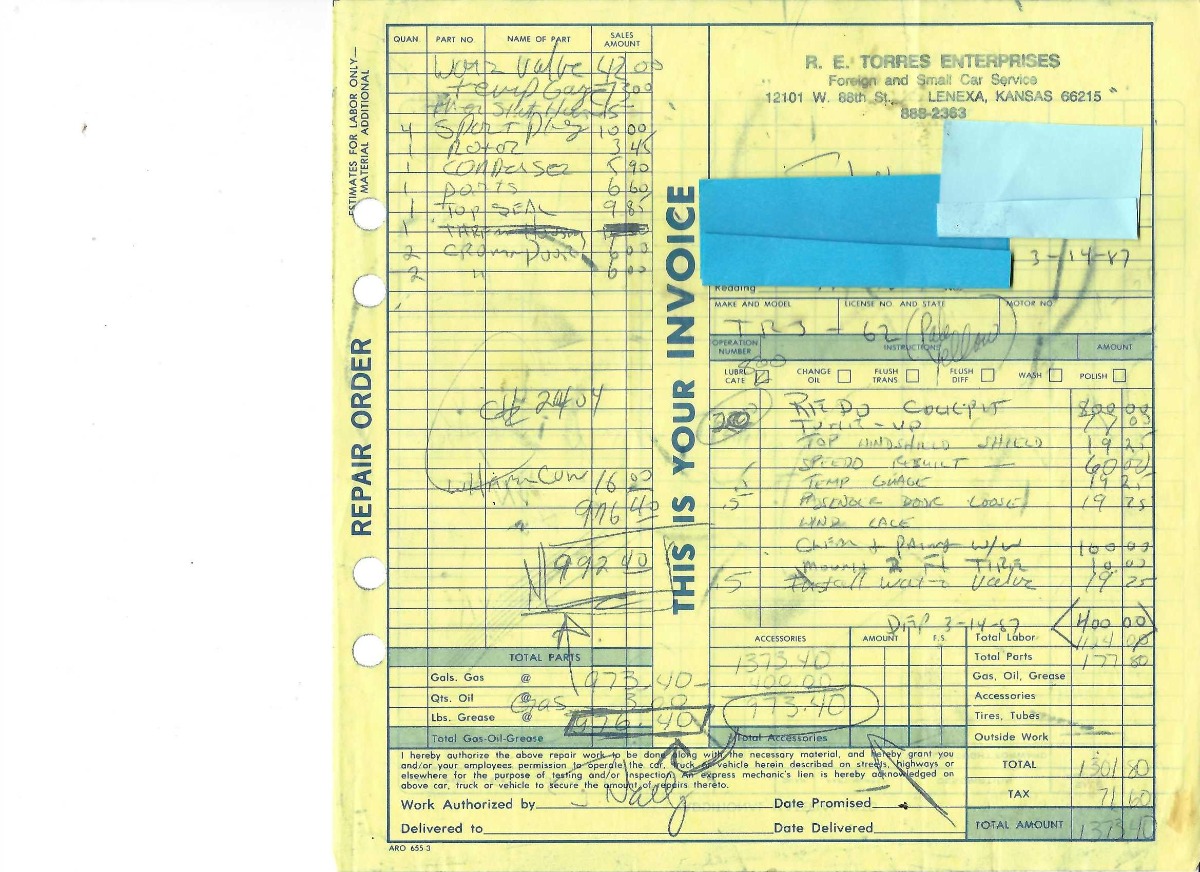 ESTIMATES FOR LABOR ONLY—
MATERIAL ADDITIONAL
REPAIR ORDER
QUAN. PART NO. NAME OF PART SALES AMOUNT
Valve 42 00
temp Gage 7 00
15-
4 Spark plug 10 00
1 Rotor 3 45
1 CONDENSER 5 90
1 parts 6 60
1 TOP SEAL 9 85
1
2 6 00
2 " 6 00
2404
16 00
976 40
992 40
TOTAL PARTS
Gals. Gas @ 973.40
Qts. Oil @ Gas
Lbs. Grease @ 976.40
Total Gas-Oil-Grease
THIS IS YOUR INVOICE
R. E. TORRES ENTERPRISES
Foreign and Small Car Service
12101 W. 88th St. LENEXA, KANSAS 66215
888-2363
3-14-87
Redding
MAKE AND MODEL LICENSE NO. AND STATE MOTOR NO.
TR3 - 62 (Pale Yellow)
OPERATION NUMBER INSTRUCTIONS AMOUNT
LUBRICATE CHANGE OIL FLUSH TRANS. FLUSH DIFF WASH POLISH
REDO COCKPIT 800 00
TUNE-UP 77 00
TOP WINDSHIELD SHIELD 19 25
SPEEDO REBUILT — 60 00
.5 TEMP GUAGE 19 25
.5 PASENGER DOOR LOOSE 19 25
WIND LACE
CLEAN & PAINT W/W 100 00
MOUNT 2 FT TIRE 10 00
.5 Install water Valve 19 25
DEP 3-14-87 400 00
ACCESSORIES AMOUNT F.S.
1373.40
400.00
973.40
Total Accessories
Total Labor
Total Parts 177 80
Gas, Oil, Grease
Accessories
Tires, Tubes
Outside Work
TOTAL 1301 80
TAX 71 60
TOTAL AMOUNT 1373 40
I hereby authorize the above repair work to be done along with the necessary material, and hereby grant you
and/or your employees permission to operate the car, truck or vehicle herein described on streets, highways or
elsewhere for the purpose of testing and/or inspection. An express mechanic's lien is hereby acknowledged on
above car, truck or vehicle to secure the amount of repairs thereto.
Work Authorized by Date Promised
Delivered to Date Delivered
ARO 655-3